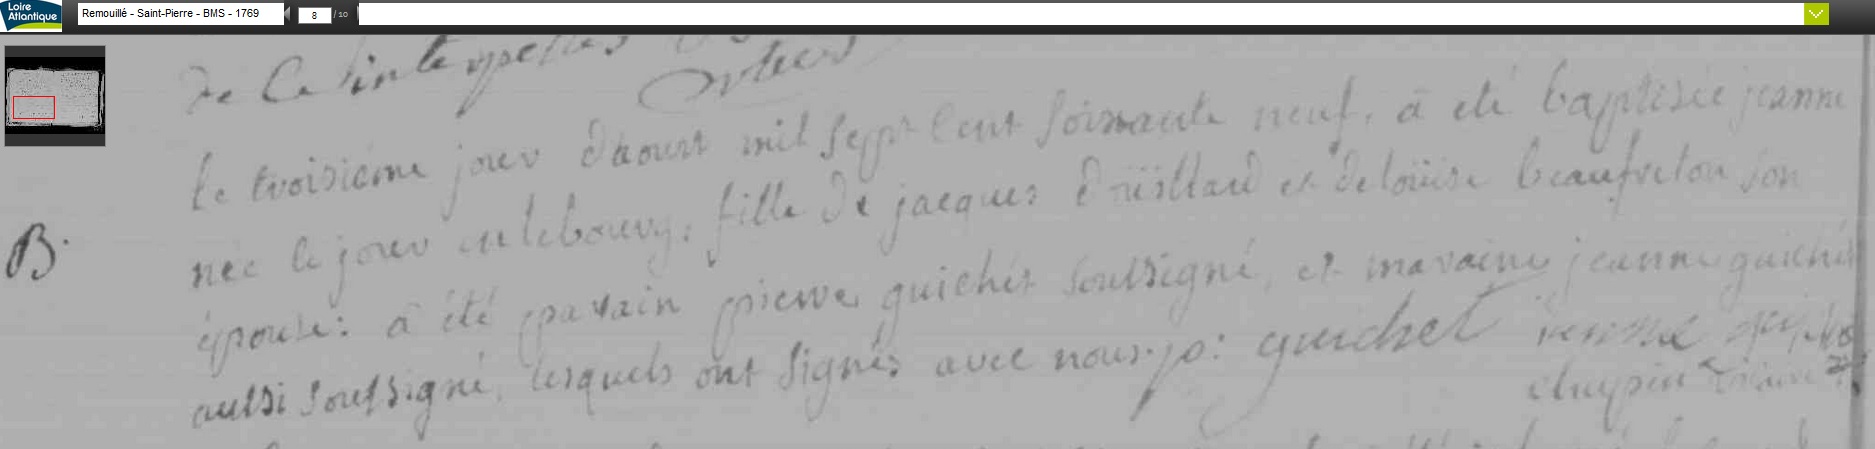 Loire
Atlantique
Remouillé - Saint-Pierre - BMS - 1769
8 / 10
de Ce interpellés
le troisième jour d'aoust mil sept cent soixante neuf, a été baptisée jeanne
née le jour en le bourg, fille de jacques Drüillard et de loüise beaufreton son
B.
épouse: a été parain pierre guichet soussigné, et maraine jeanne guichet
aussi soussigné, lesquels ont signés avec nous. p: guichet jeanne
chupin vicaire